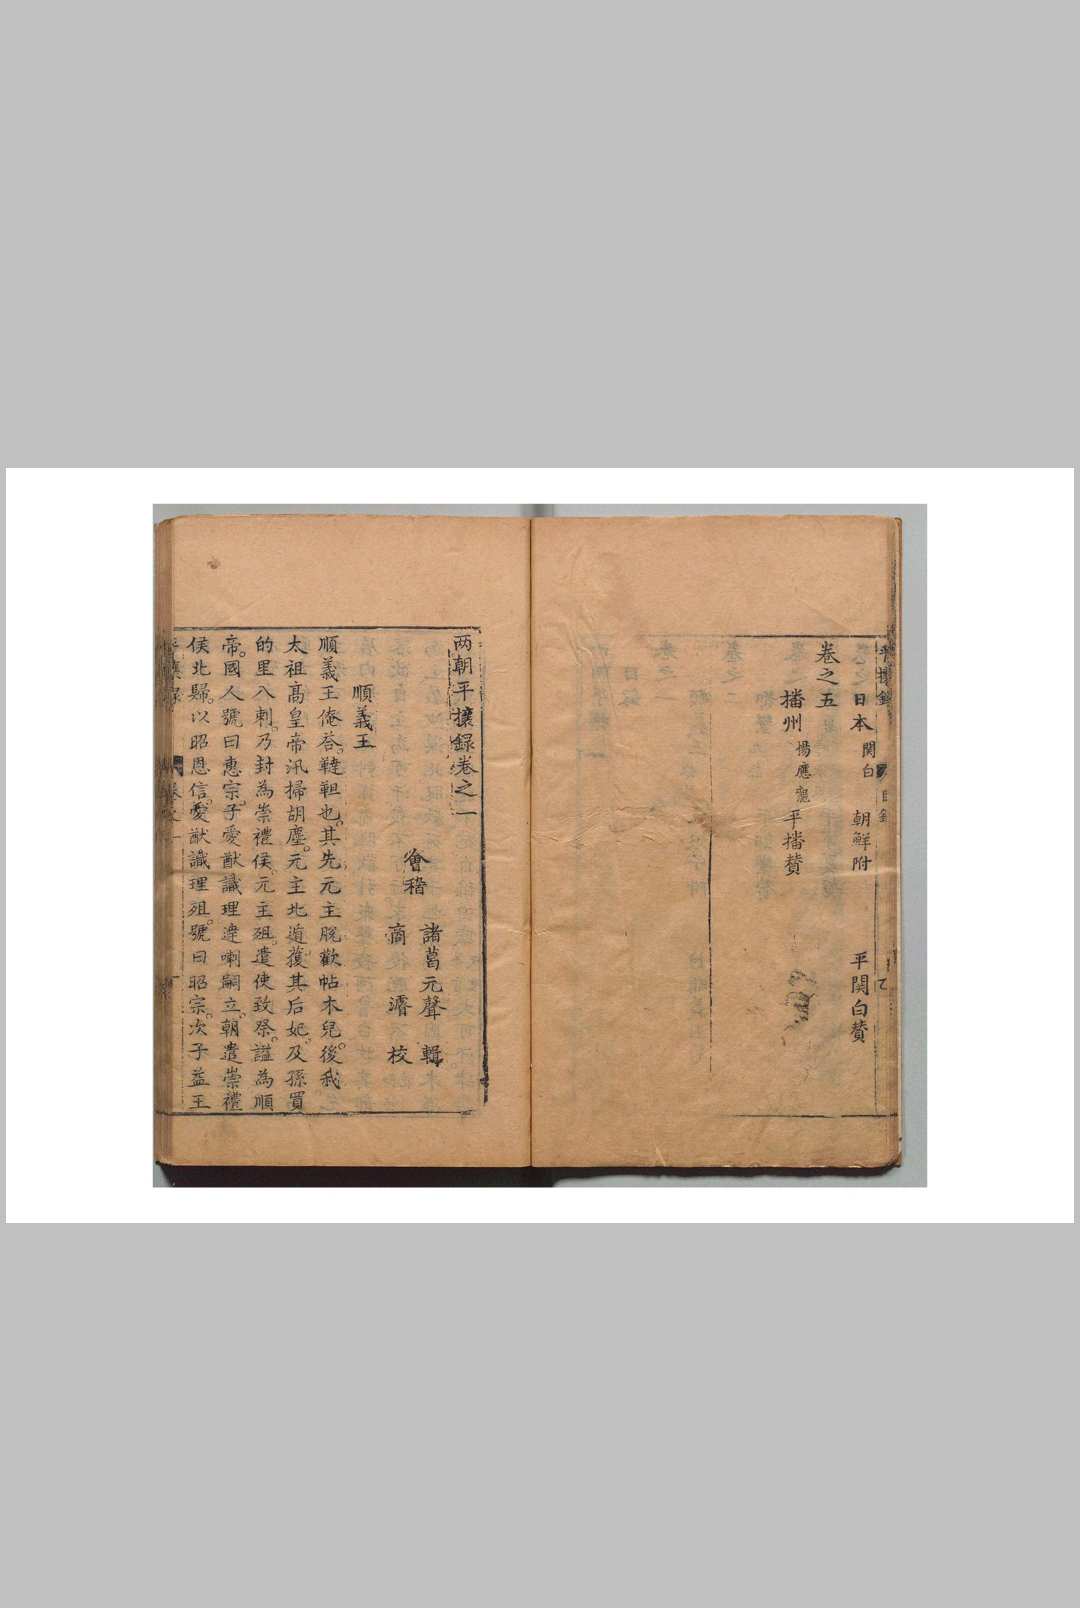 日本 関白 朝鮮附 平関白賛
卷之五
播州 楊應龍 平播賛
两朝平攘録卷之一
會稽 諸葛元聲 輯
商濬 校
順義王
順義王俺荅。韃靼也。其先元主脫歡帖木兒。後我
太祖高皇帝汛掃胡塵。元主北遁。獲其后妃。及孫買
的里八剌。乃封為崇禮侯。元主殂。遣使致祭。諡為順
帝。國人號曰惠宗。子愛猷識理達喇嗣立。朝遣崇禮
侯北歸。以昭恩信。愛猷識理殂。號曰昭宗。次子益王